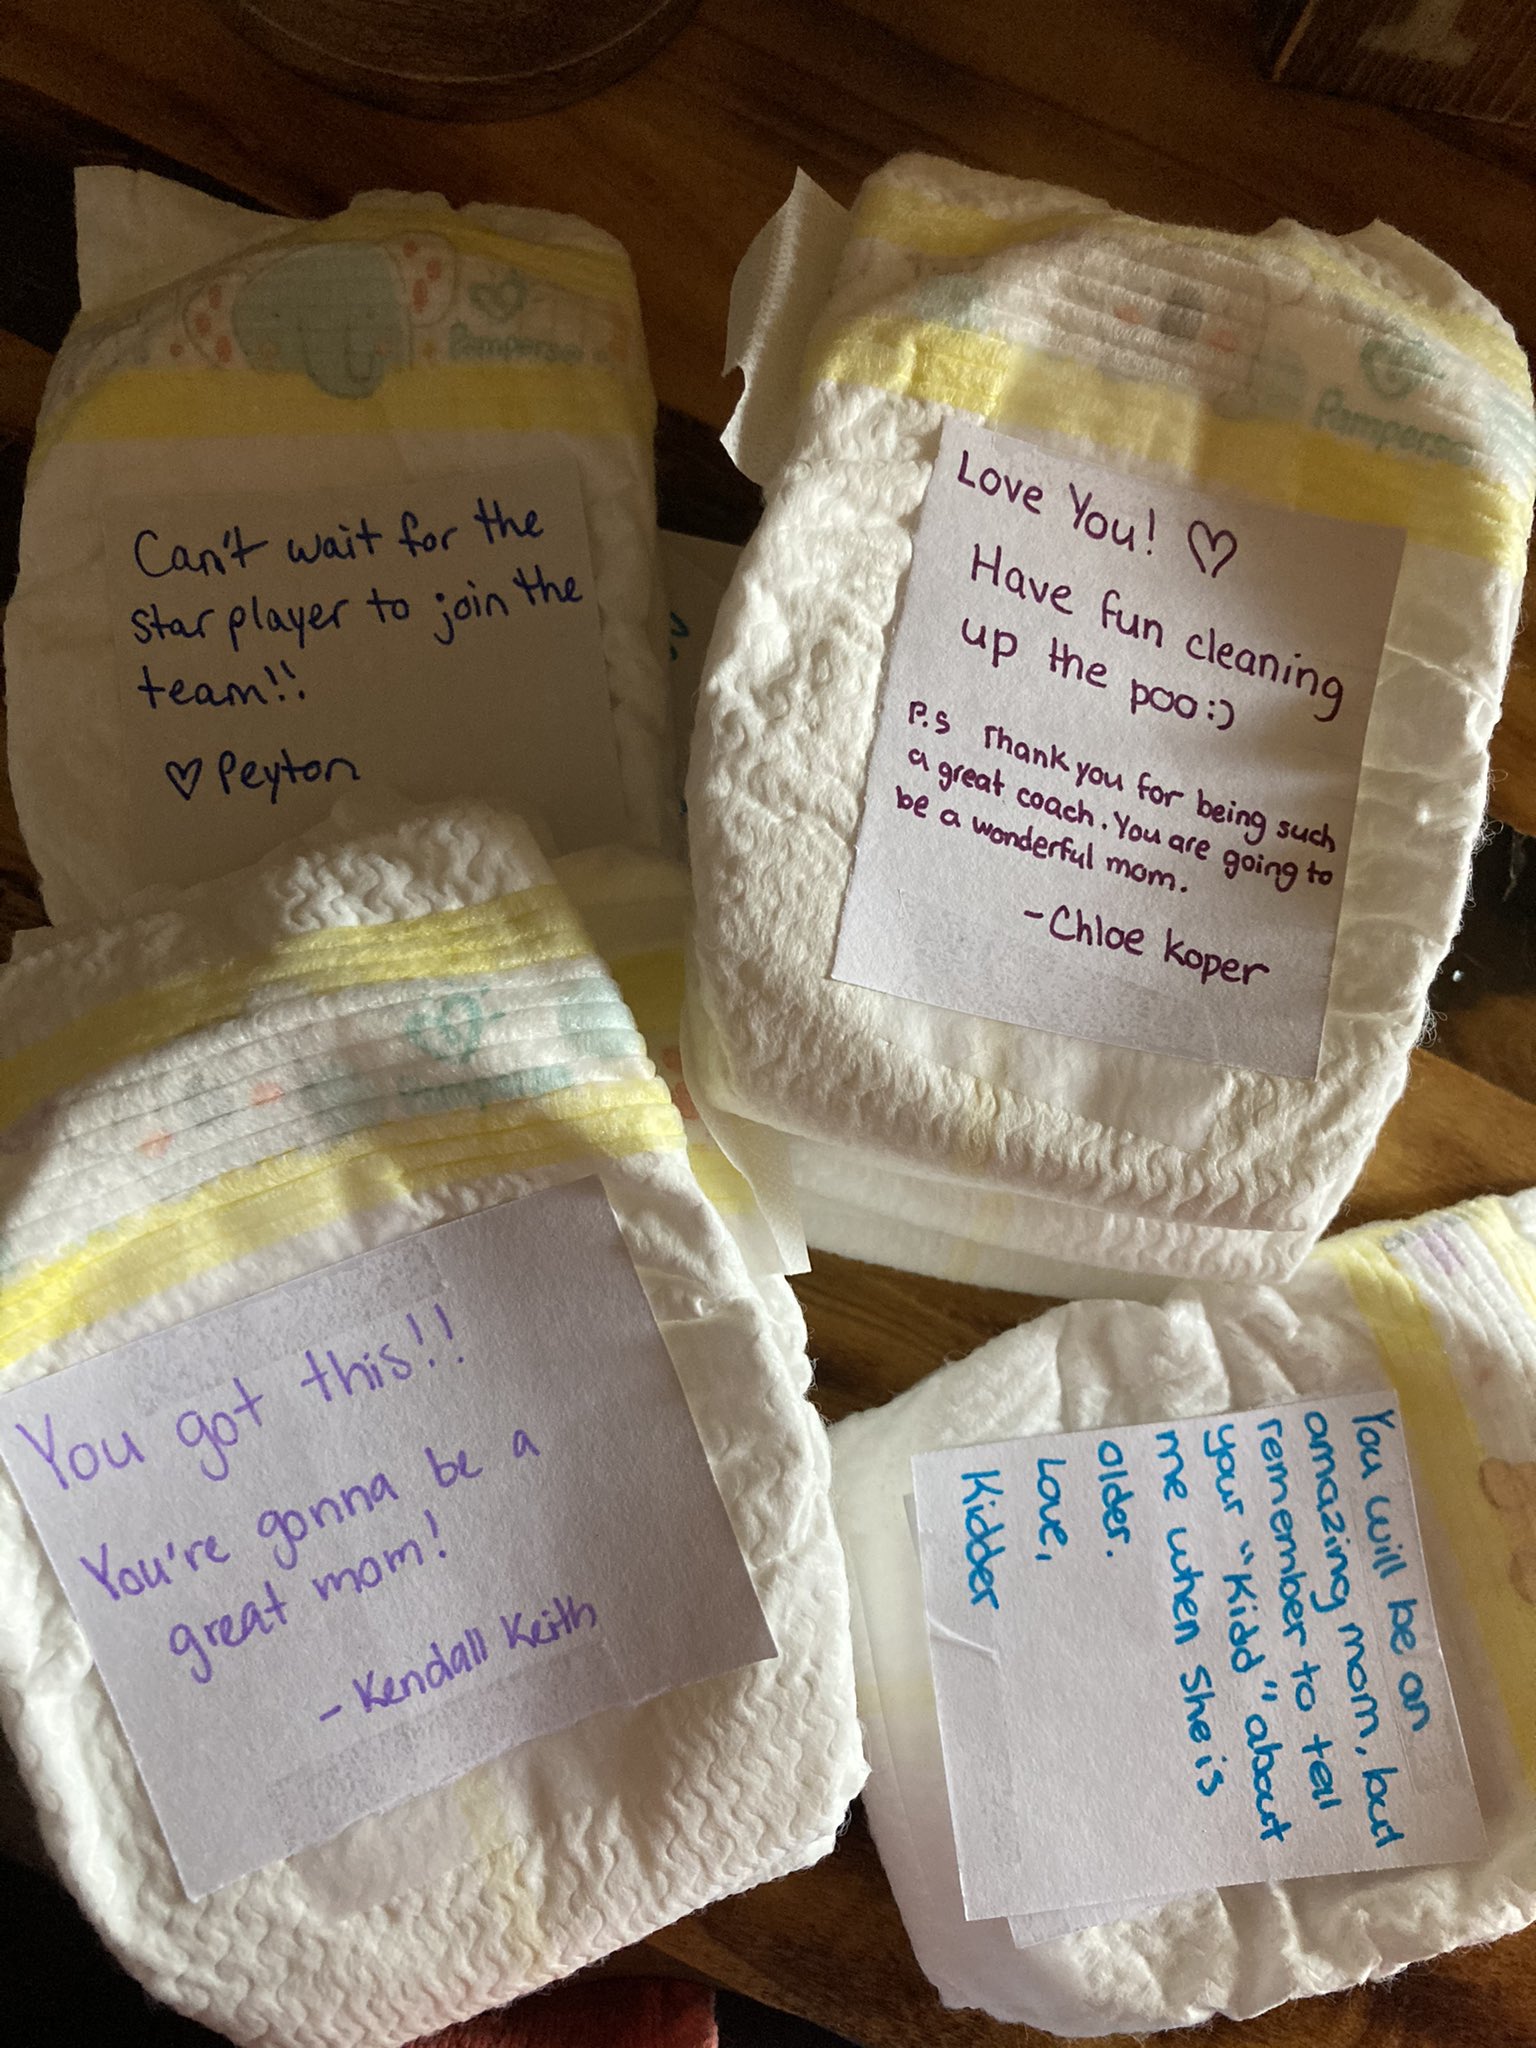 Pampers
Can't wait for the
star player to join the
team!!
♡ Peyton
Pampers
Love You! ♡
Have fun cleaning
up the poo:)
P.S Thank you for being such
a great coach. You are going to
be a wonderful mom.
-Chloe Koper
Pampers
You got this!!
You're gonna be a
great mom!
- Kendall Keith
You will be an
amazing mom, but
remember to tell
your "Kidd" about
me when she is
older.
Love,
Kidder